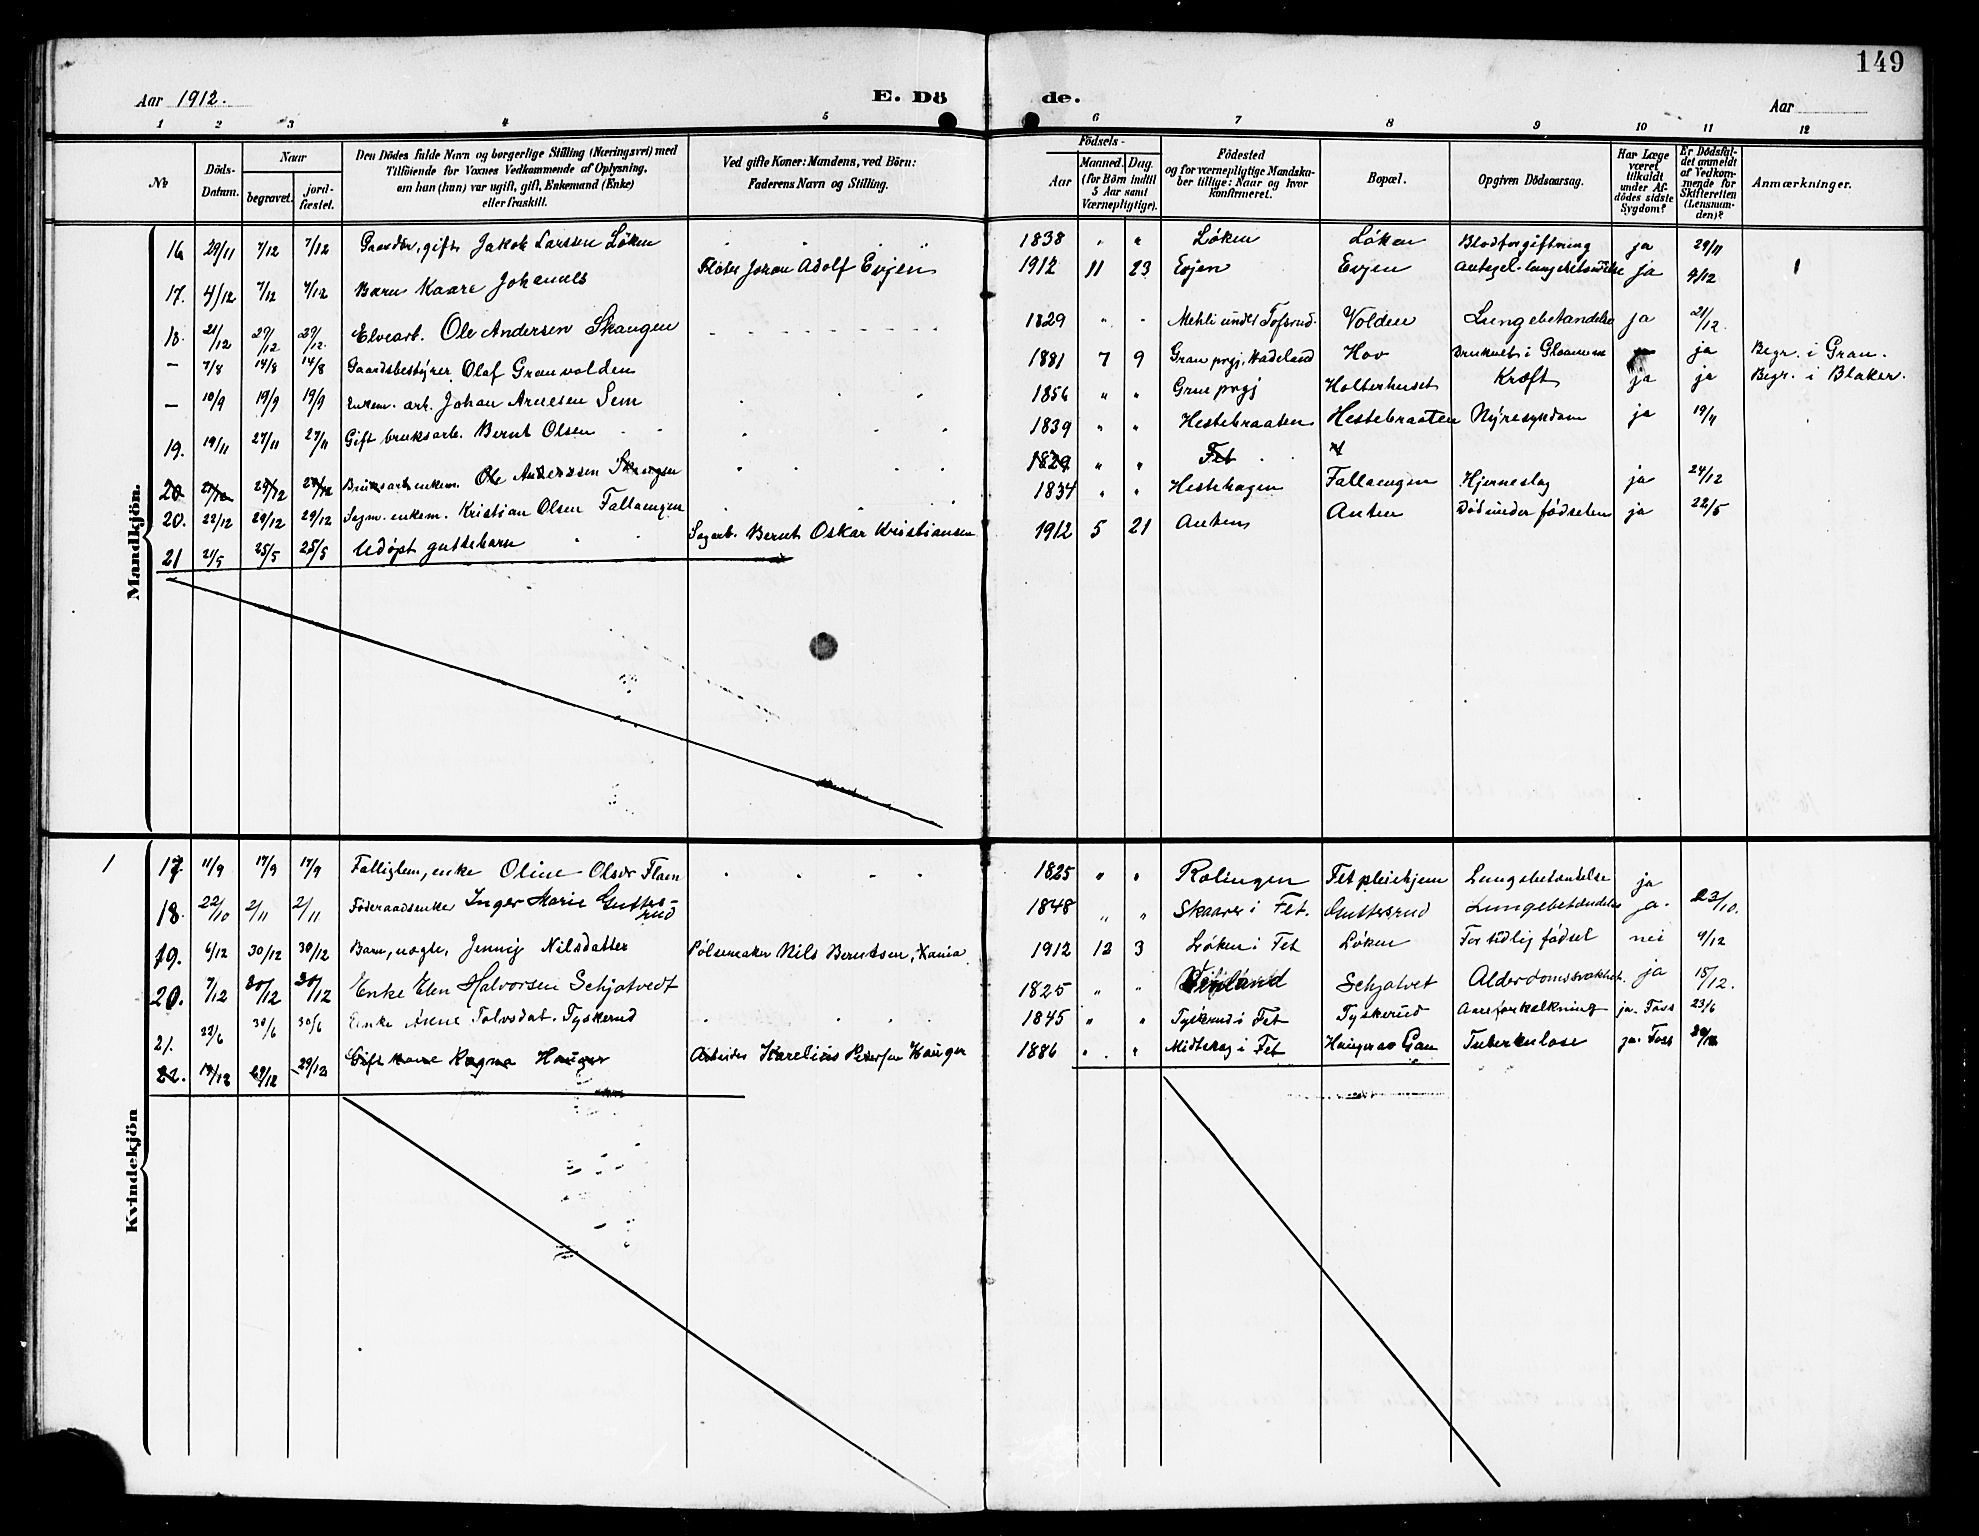 149
Aar 1912.
E. Dö de.
Aar
1 2 3 4 5 6 7 8 9 10 11 12
No
Döds-Datum.
Naar
begravet.
jord-fæstet.
Den Dödes fulde Navn og borgerlige Stilling (Næringsvei) med Tilföiende for Voxnes Vedkommende af Oplysning, om han (hun) var ugift, gift, Enkemand (Enke) eller fraskilt.
Ved gifte Koner: Mandens, ved Börn: Faderens Navn og Stilling.
Födsels-
Aar
Maaned. Dag.
(for Börn indtil 5 Aar samt Værnepligtige).
Födested og for værnepligtige Mandskaber tillige: Naar og hvor konfirmeret.
Bopæl.
Opgiven Dödsaarsag.
Har Læge været tilkaldt under Afdödes sidste Sygdom?
Er Dödsfaldet anmeldt af Vedkommende for Skifteretten (Lensmanden)?
Anmærkninger.
Mandkjön.
16 29/11 7/12 7/12 Gaardbr., gift, Jakob Larssen Løken " " " " 1838 " " Løken Løken Blodforgiftning ja 29/11
17. 4/12 7/12 7/12 Barn Kaare Johannes Fløter Johan Adolf Evjen 1912 11 23 Evjen Evjen ja 9/12
18. 21/12 29/12 29/12. Elvearb. Ole Andersen Skangen 1829 " " Mehli under Tofsrud. Volden Lungebetændelse ja 21/12.
— 7/8 14/8 14/8 Gaardsbestyrer Olaf Granvolden 1881 7 9 Gran prgj. Hadeland Hov Druknet i Glommen ja Begr. i Gran.
— 10/9 19/9 19/9 Enkem. arb. Johan Arnesen Sem 1856 " " Grue prgj Holterhuset Kræft ja ja Begr. i Blaker.
19. 19/11 27/11 27/11 Gift bruksarb. Bernt Olsen 1839 " " Hestebraaten Hestebraaten Nyresygdom ja 19/11
20 29/12 Bruksarb. enkem. Ole Anderssen Skangen 1829 " " Fet "
20. 22/12 29/12 29/12 Sagm. enkem. Kristian Olsen Fallaengen 1834 " " Hestehagen Fallaengen Hjerneslag ja 24/12
21 21/5 25/5 25/5 Udøpt guttebarn Sagarb. Bernt Oskar Kristiansen 1912 5 21 Anten Anten Død under fødselen ja 22/5
Kvindekjön
1
17. 11/9 17/9 17/9 Fattiglem, enke Oline Olsdr Flaen 1825 " " Rælingen Fet pleiehjem Lungebetændelse ja
18. 22/10 2/11 2/11 Føderaadsenke Inger Marie Guttersrud 1848 " " Skaarer i Fet. Guttersrud Lungebetændelse ja. 23/10.
19. 6/12 30/12 30/12 Barn, uægte, Jenny Nilsdatter Pølsemaker Nils Berntsen, Xania 1912 12 3 Løken i Fet Løken For tidlig fødsel nei 9/12
20. 7/12 30/12 30/12 Enke Elen Halvorsen Schjatvedt 1825 " " Schjatvet Alderdomssvakhet ja 15/12.
21. 22/6 30/6 30/6 Enke Anne Tolvsdat. Tyskerud 1845 " " Tyskerud i Fet Tyskerud Aareforkalkning ja. Foss 23/6
22. 19/12 29/12 29/12 Gift kone Ragna Hauger Arbeider Karelius Petersen Hauger 1886 " " Midtskog i Fet Hauger av Gan Tuberkulose ja. Foss